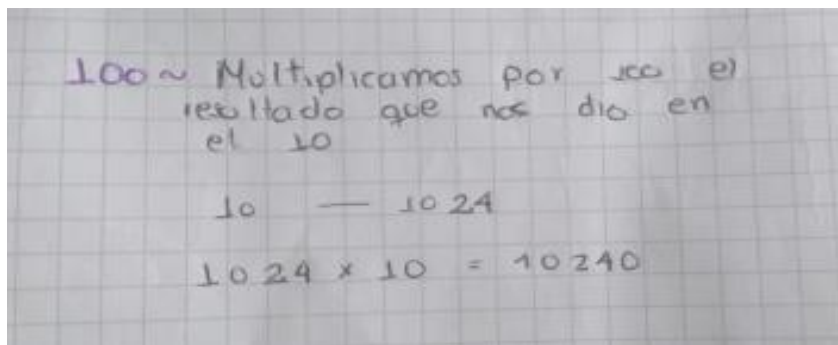 100 ~ Multiplicamos por 100 el
resultado que nos dio en
el 10
10 — 1024
1024 x 10 = 10240